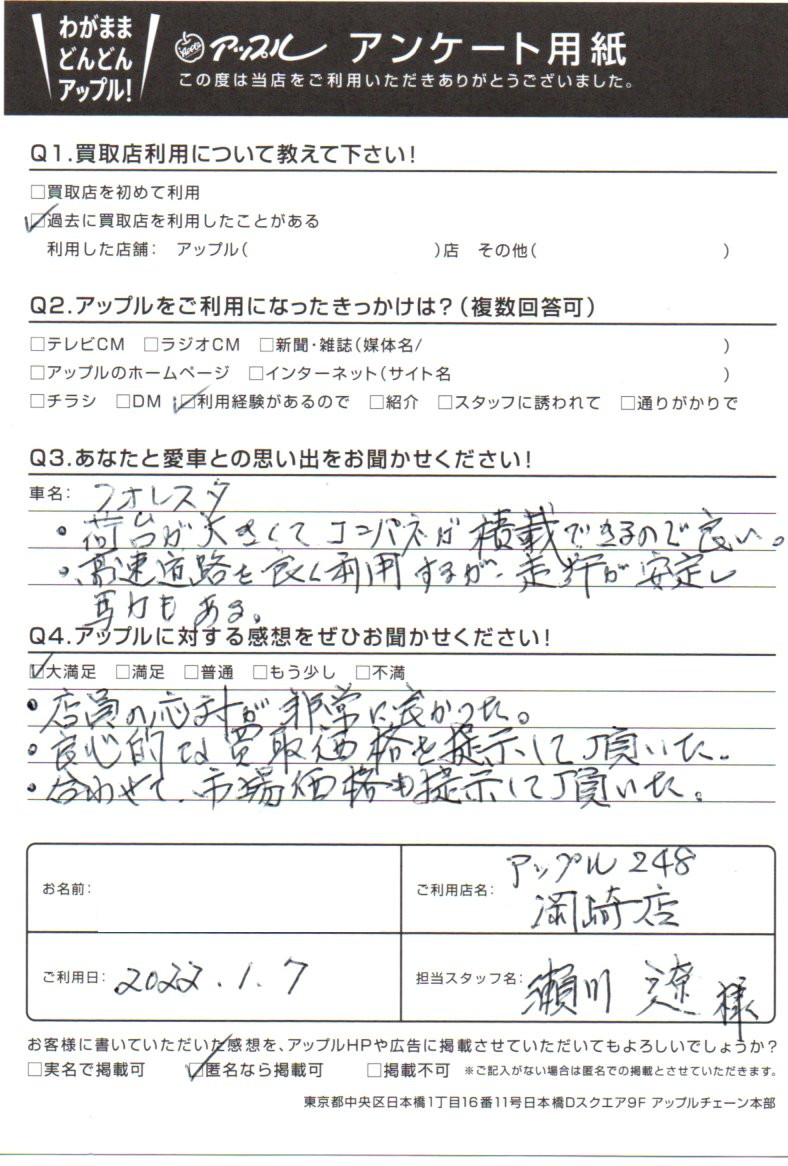 わがまま
どんどん
アップル!
アップル アンケート用紙
この度は当店をご利用いただきありがとうございました。
Q1.買取店利用について教えて下さい!
□買取店を初めて利用
☑過去に買取店を利用したことがある
利用した店舗: アップル( )店 その他( )
Q2.アップルをご利用になったきっかけは?(複数回答可)
□テレビCM □ラジオCM □新聞・雑誌(媒体名/ )
□アップルのホームページ □インターネット(サイト名 )
□チラシ □DM ☑利用経験があるので □紹介 □スタッフに誘われて □通りがかりで
Q3.あなたと愛車との思い出をお聞かせください!
車名: フォレスタ
・荷台が大きくてコンパネが積載できるので良い。
・高速道路を良く利用するが、走行が安定し
馬力もある。
Q4.アップルに対する感想をぜひお聞かせください!
☑大満足 □満足 □普通 □もう少し □不満
・店員の応対が非常に良かった。
・良心的な買取価格を提示して頂いた。
・合わせて、市場価格も提示して頂いた。
お名前:
ご利用店名: アップル248
岡崎店
ご利用日: 2022.1.7
担当スタッフ名: 瀬川 遼 様
お客様に書いていただいた感想を、アップルHPや広告に掲載させていただいてもよろしいでしょうか?
□実名で掲載可 ☑匿名なら掲載可 □掲載不可 ※ご記入がない場合は匿名での掲載とさせていただきます。
東京都中央区日本橋1丁目16番11号日本橋Dスクエア9F アップルチェーン本部